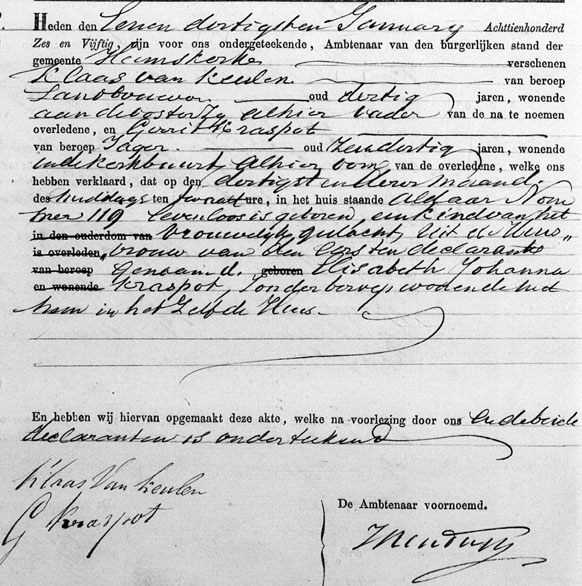 Heden den Eenen dertigsten January Achttienhonderd
Zes en Vijftig, zijn voor ons ondergeteekende, Ambtenaar van den burgerlijken stand der
gemeente Heemskerk verschenen
Klaas van Keulen van beroep
Landbouwer oud dertig jaren, wonende
aan de Oosterzy alhier vader van de na te noemen
overledene, en Gerrit Kraspot
van beroep Jager oud dertig jaren, wonende
in de Kerkbuurt, alhier oom van de overledene, welke ons
hebben verklaard, dat op den dertigsten dezer maand
des middags ten ure, in het huis staande aldaar Nom
mer 119 levenloos is geboren, een kind van het
in den ouderdom van vrouwelijk geslacht, uit de Huis„
is overleden, „vrouw van den Eersten declarant
van beroep genaamd geboren Elisabeth Johanna
en wonende Kraspot, zonder beroep wonende met
hem in het Zelfde Huis.
En hebben wij hiervan opgemaakt deze akte, welke na voorlezing door ons en de beide
declaranten is onderteekend
Klaas Van Keulen
G Kraspot
De Ambtenaar voornoemd.